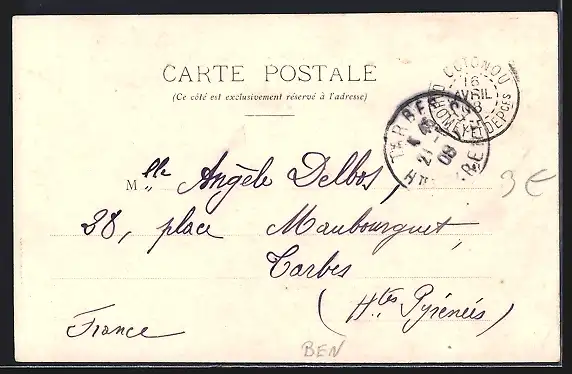 CARTE POSTALE
(Ce côté est exclusivement réservé à l'adresse)
COTONOU
16
AVRIL
08
DAHOMEY ET DÉPCES
TARBES
21
08
Mlle Angèle Delbos,
38, place Maubourguet,
Tarbes
(Htes Pyrénées)
France
3€
BEN